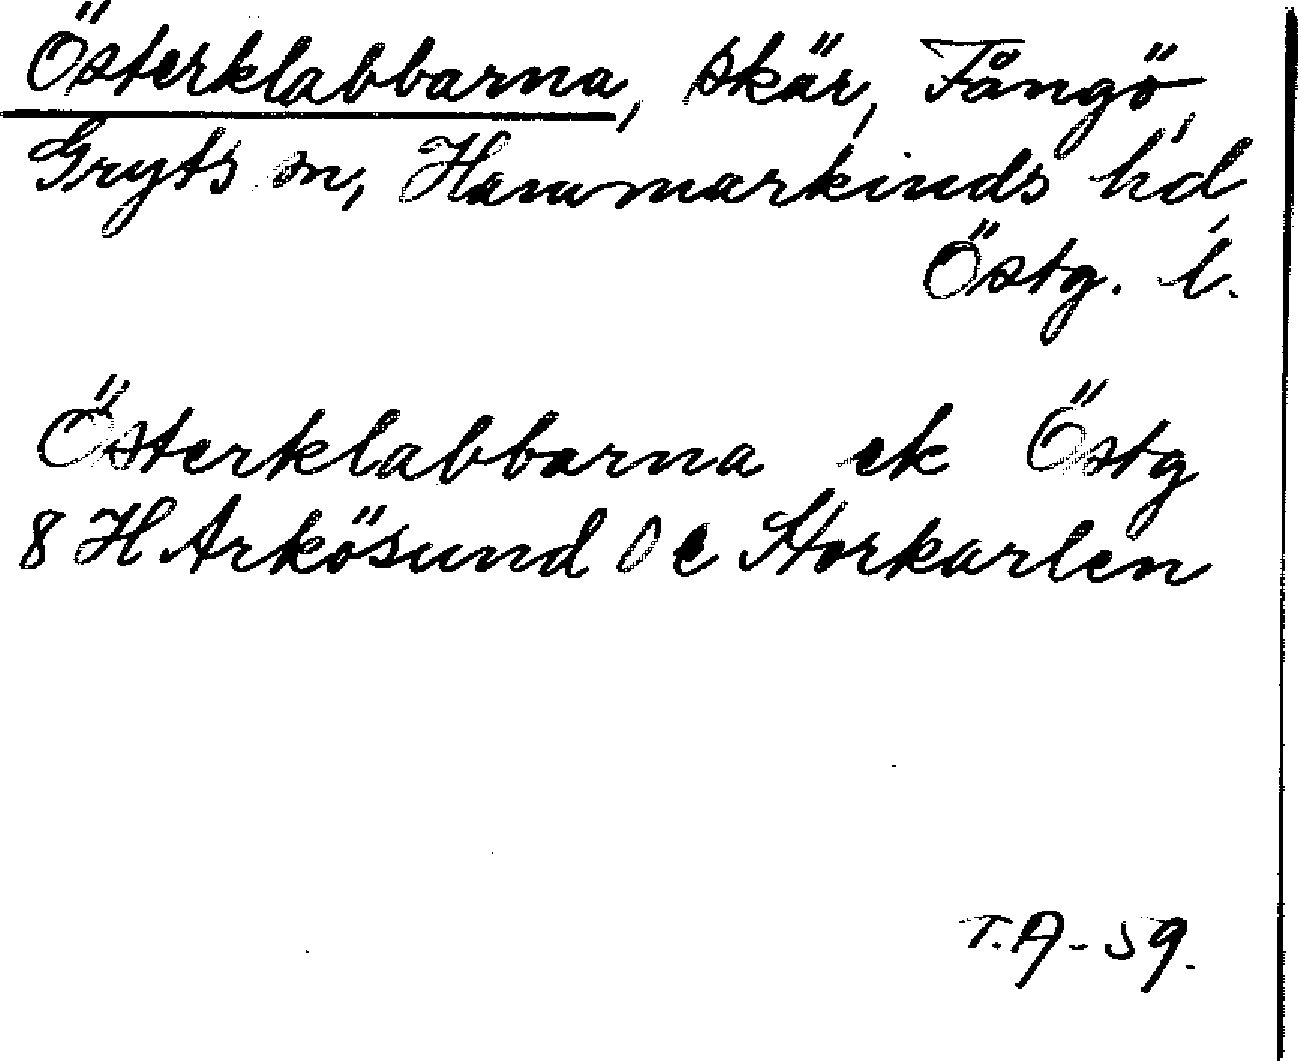 Österklabbarna, skär, Fångö,
Gryts sn, Hammarkinds hd,
Östg. l.
Österklabbarna ek Östg
8 H Arkösund 0 e Storkarlen
T.A-59.